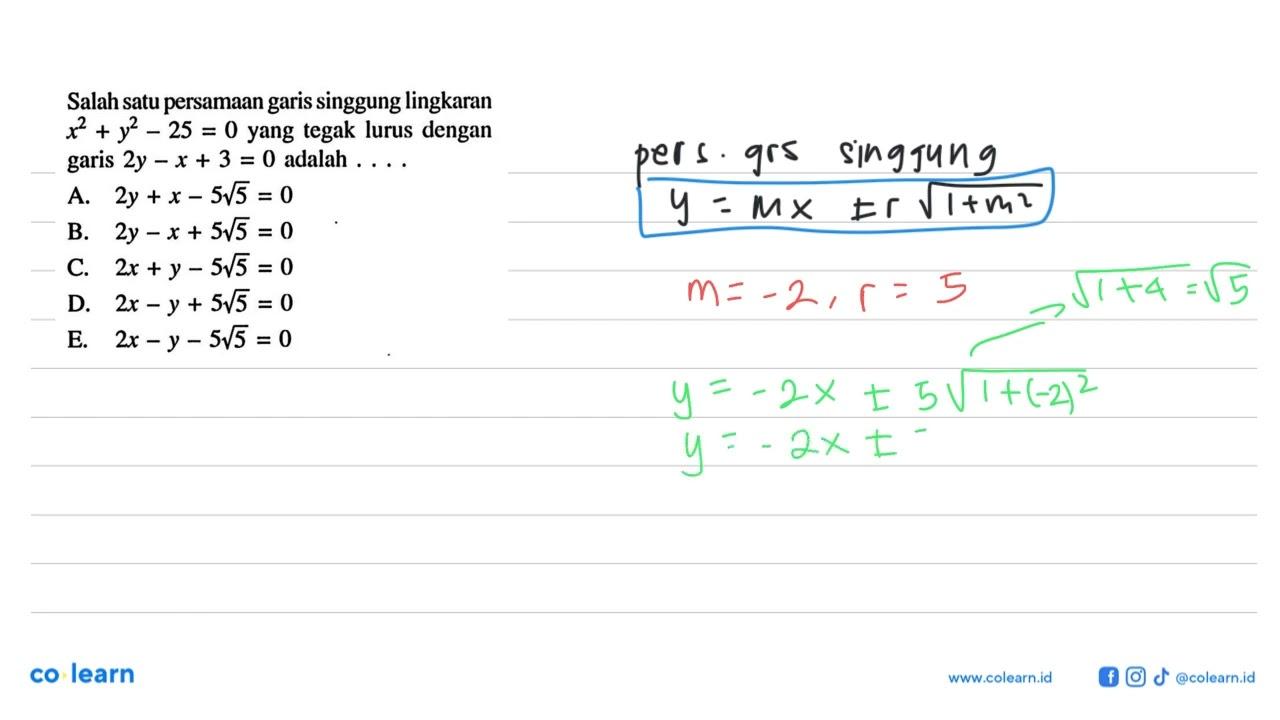 Salah satu persamaan garis singgung lingkaran
x² + y² – 25 = 0 yang tegak lurus dengan
garis 2y – x + 3 = 0 adalah . . . .
A. 2y + x – 5√5 = 0
B. 2y – x + 5√5 = 0
C. 2x + y – 5√5 = 0
D. 2x – y + 5√5 = 0
E. 2x – y – 5√5 = 0
pers. grs singgung
y = mx ± r √(1+m²)
m = -2, r = 5
√(1+4) = √5
y = -2x ± 5√(1+(-2)²)
y = -2x ±
co·learn
www.colearn.id
@colearn.id